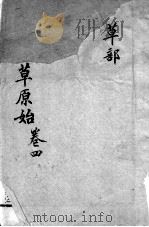 草部
草原始卷四
http://www.mtoou.info/